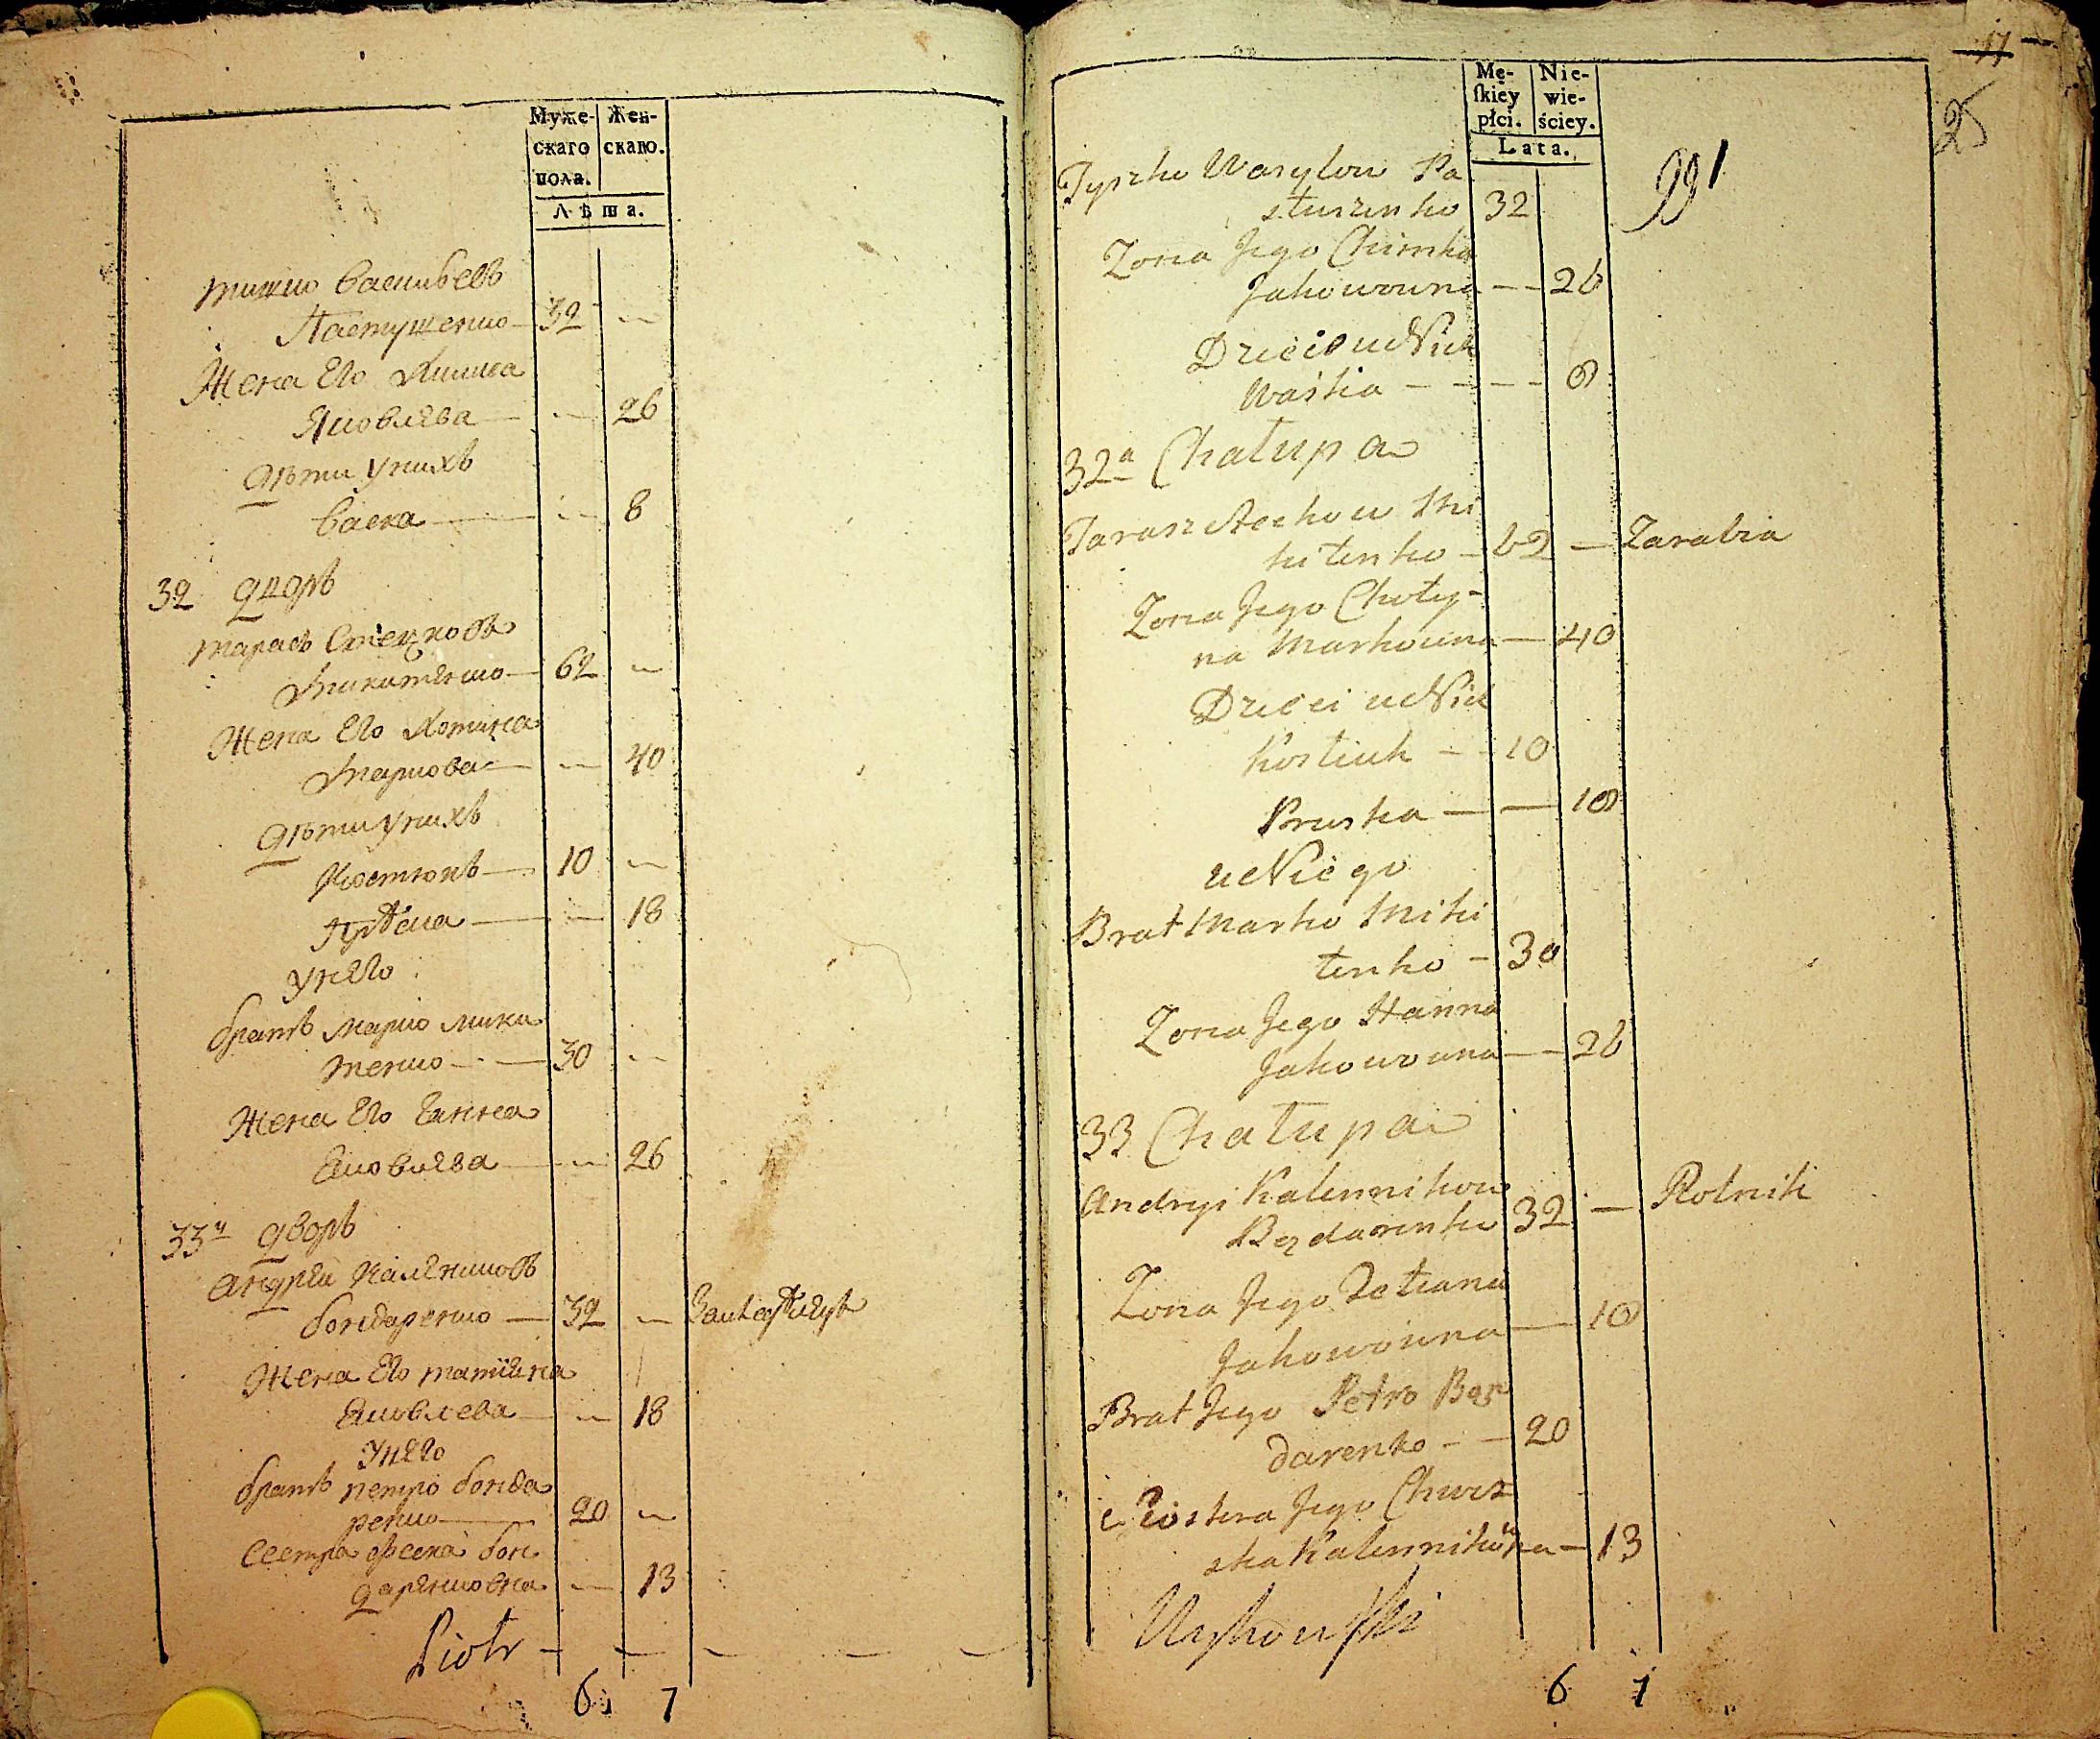 Муже-
скаго
пола.
Жен-
скаго.
Лѣта.
тишко Васильевъ
Пастушенко — 32 —
Жена Его Химка
Яковлева — — 26
Дѣти Унихъ
Васка — — 8
32 дворъ
тарасъ Стецковъ
Микитенко — 62 —
Жена Его Хотина
Маркова — — 40
Дѣти Унихъ
Костюкъ — 10 —
— 18
Унего
братъ Марко мики
тенко — 30 —
Жена Его Ганна
Яковлева — — 26
33й дворъ
андрей Калениковъ
бондаренко — 32 —
Жена Его татіяна
Яковлева — — 18
Унего
братъ петро бонда
ренко — 20 —
сестра фєска бон
даренковна — — 13
Piotr — — — — —
6 7
17
25
991
Mę-
ſkiey
płci.
Nie-
wie-
ściey.
Lata.
Tyszko Wasylow Pa
stuszenko 32
Zona Jego Chimka
Jakowowna — — 26
Dzieci u Nich
Waska — — — 8
32a Chałupa
Tarasz Stechow Mi
kitenko — 62 — Zarabia
Zona Jego Choty-
na Markowna — 40
Dzieci u Nich
Kostiuk — — 10
Pruska — — 18
u Niego
Brat Marko Miki
tenko — 30
Zona Jego Hanna
Jakowowna — — 26
33 Chałupa
Andryi Kalennikow
Bądarenko 32 — Rolnik
Zona Jego Tetiana
Jakowowna — 18
Brat Jego Petro Bąn
darenko — — 20
Siostra Jego Chwes
ska Kalennikowna — 13
6 7